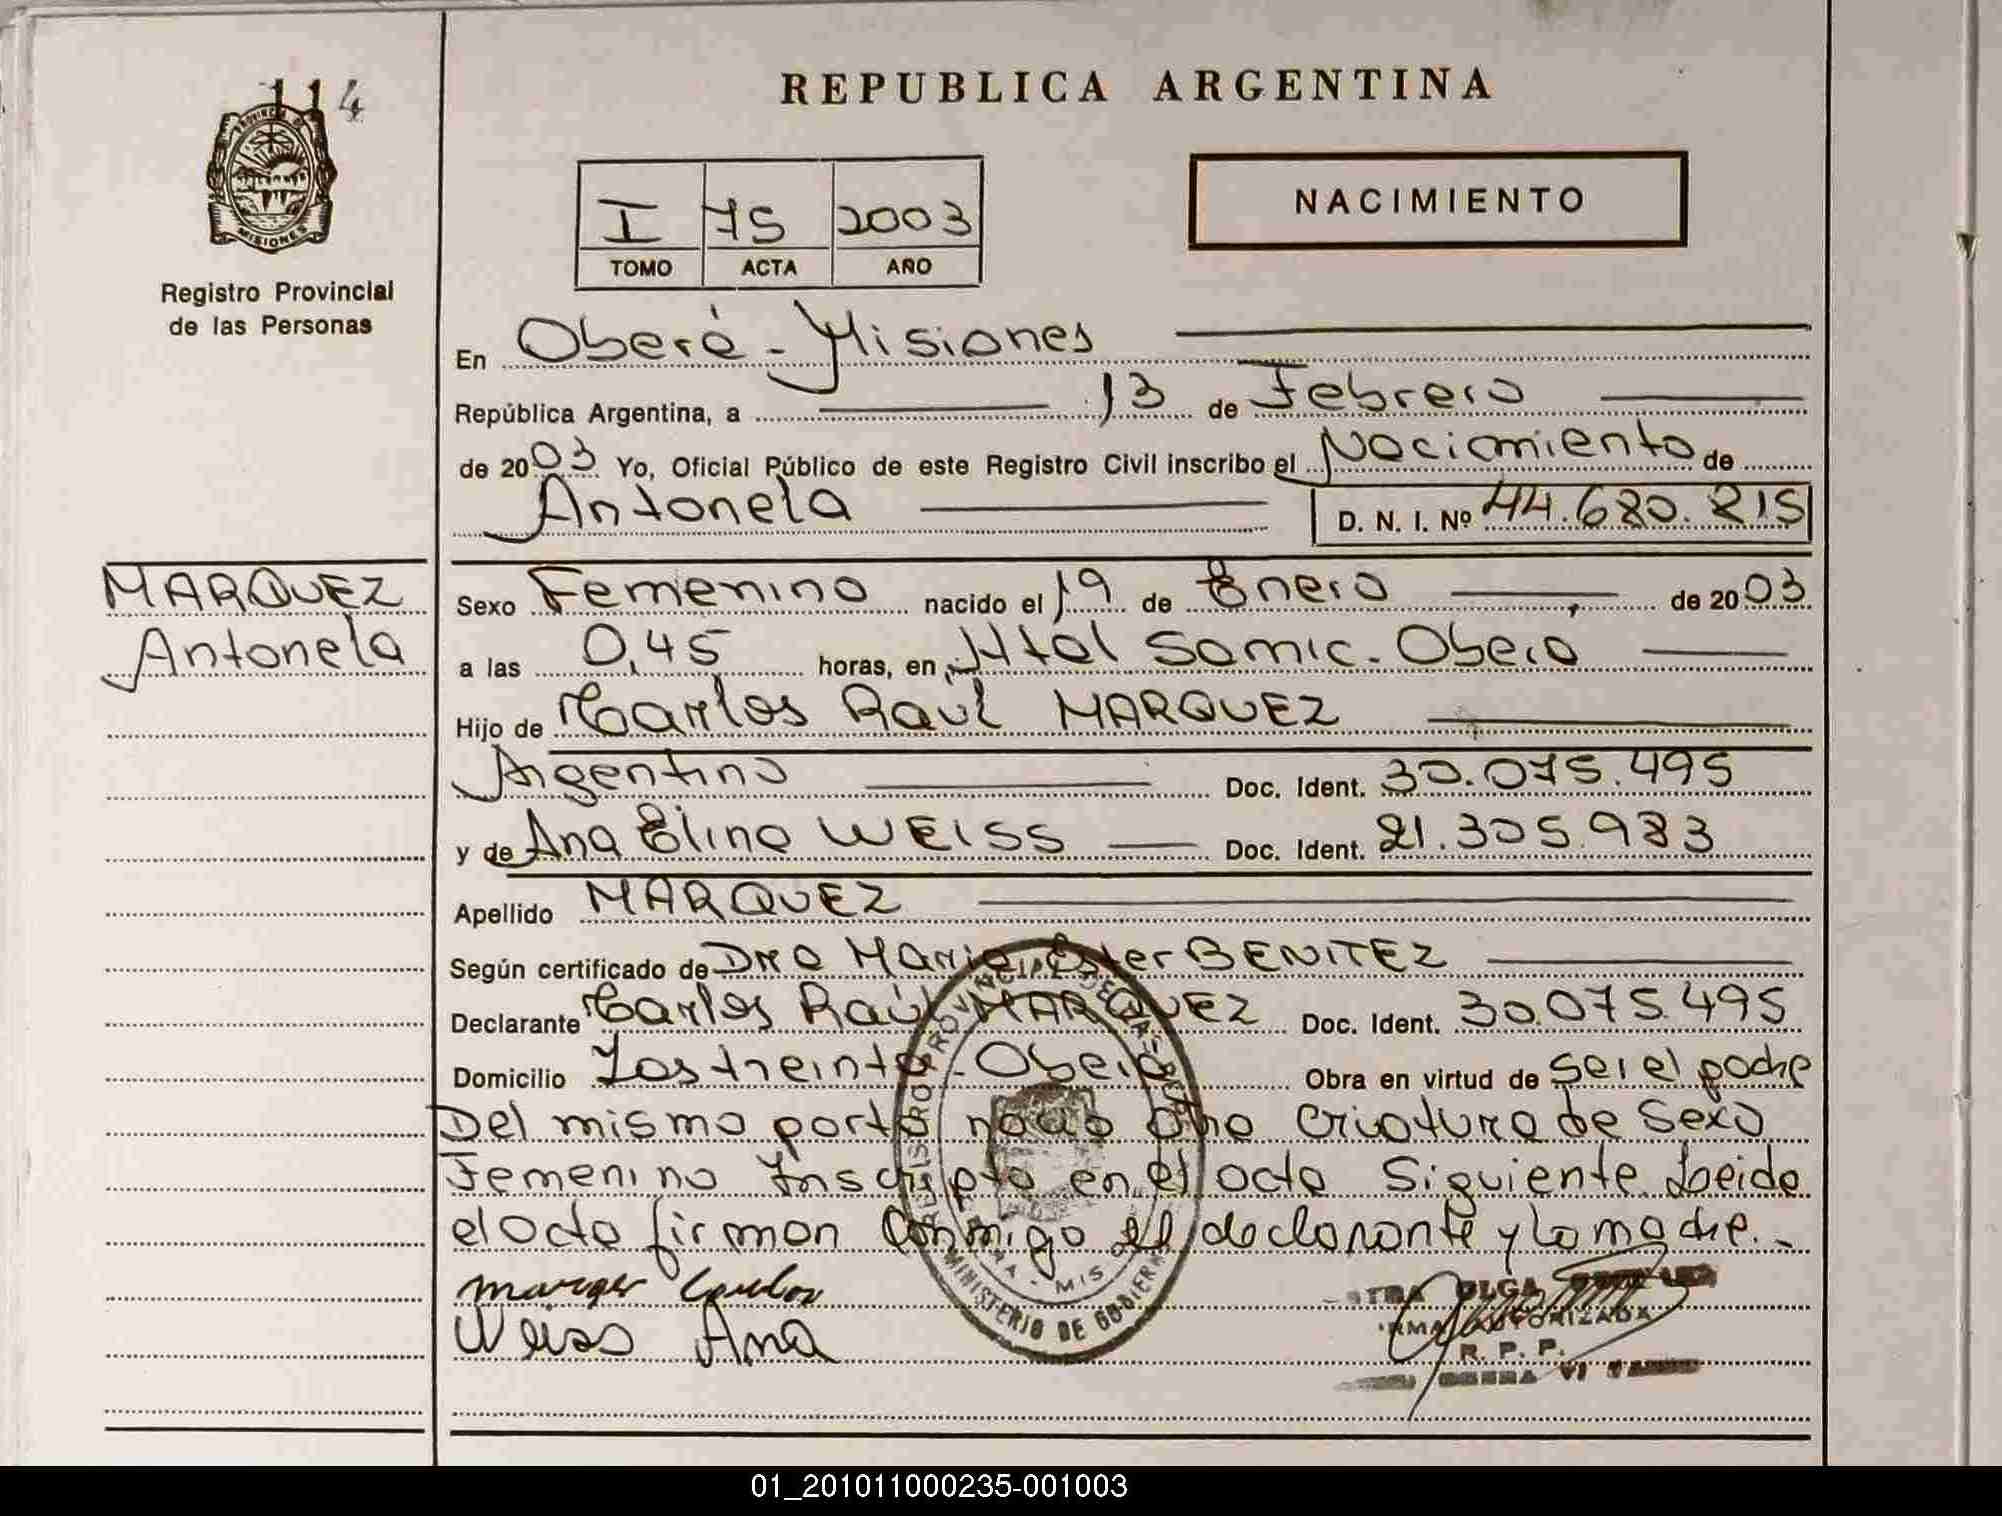 114
PROVINCIA DE
MISIONES
Registro Provincial
de las Personas
MARQUEZ
Antonela
REPUBLICA ARGENTINA
I 75 2003
TOMO ACTA AÑO
NACIMIENTO
En Oberá - Misiones
República Argentina, a 13 de Febrero
de 2003 Yo, Oficial Público de este Registro Civil inscribo el Nacimiento de
Antonela D. N. I. Nº 44.680.215
Sexo Femenino nacido el 19 de Enero de 2003
a las 0,45 horas, en Htal Samic - Oberá
Hijo de Carlos Raúl MARQUEZ
Argentino Doc. Ident. 30.075.495
y de Ana Elina WEISS Doc. Ident. 21.305.983
Apellido MARQUEZ
Según certificado de Dra Maria Ester BENITEZ
Declarante Carlos Raúl MARQUEZ Doc. Ident. 30.075.495
Domicilio Los treinta - Oberá Obra en virtud de ser el padre
Del mismo parto nació otra criatura de sexo
Femenino Inscripta en el acta siguiente. Leida
el acta firman conmigo el declarante y la madre.-
marquez Carlos
Weiss Ana
REGISTRO PROVINCIAL DE LAS
MINISTERIO DE GOBIERNO
OLGA
FIRMA AUTORIZADA
R. P. P.
01_201011000235-001003